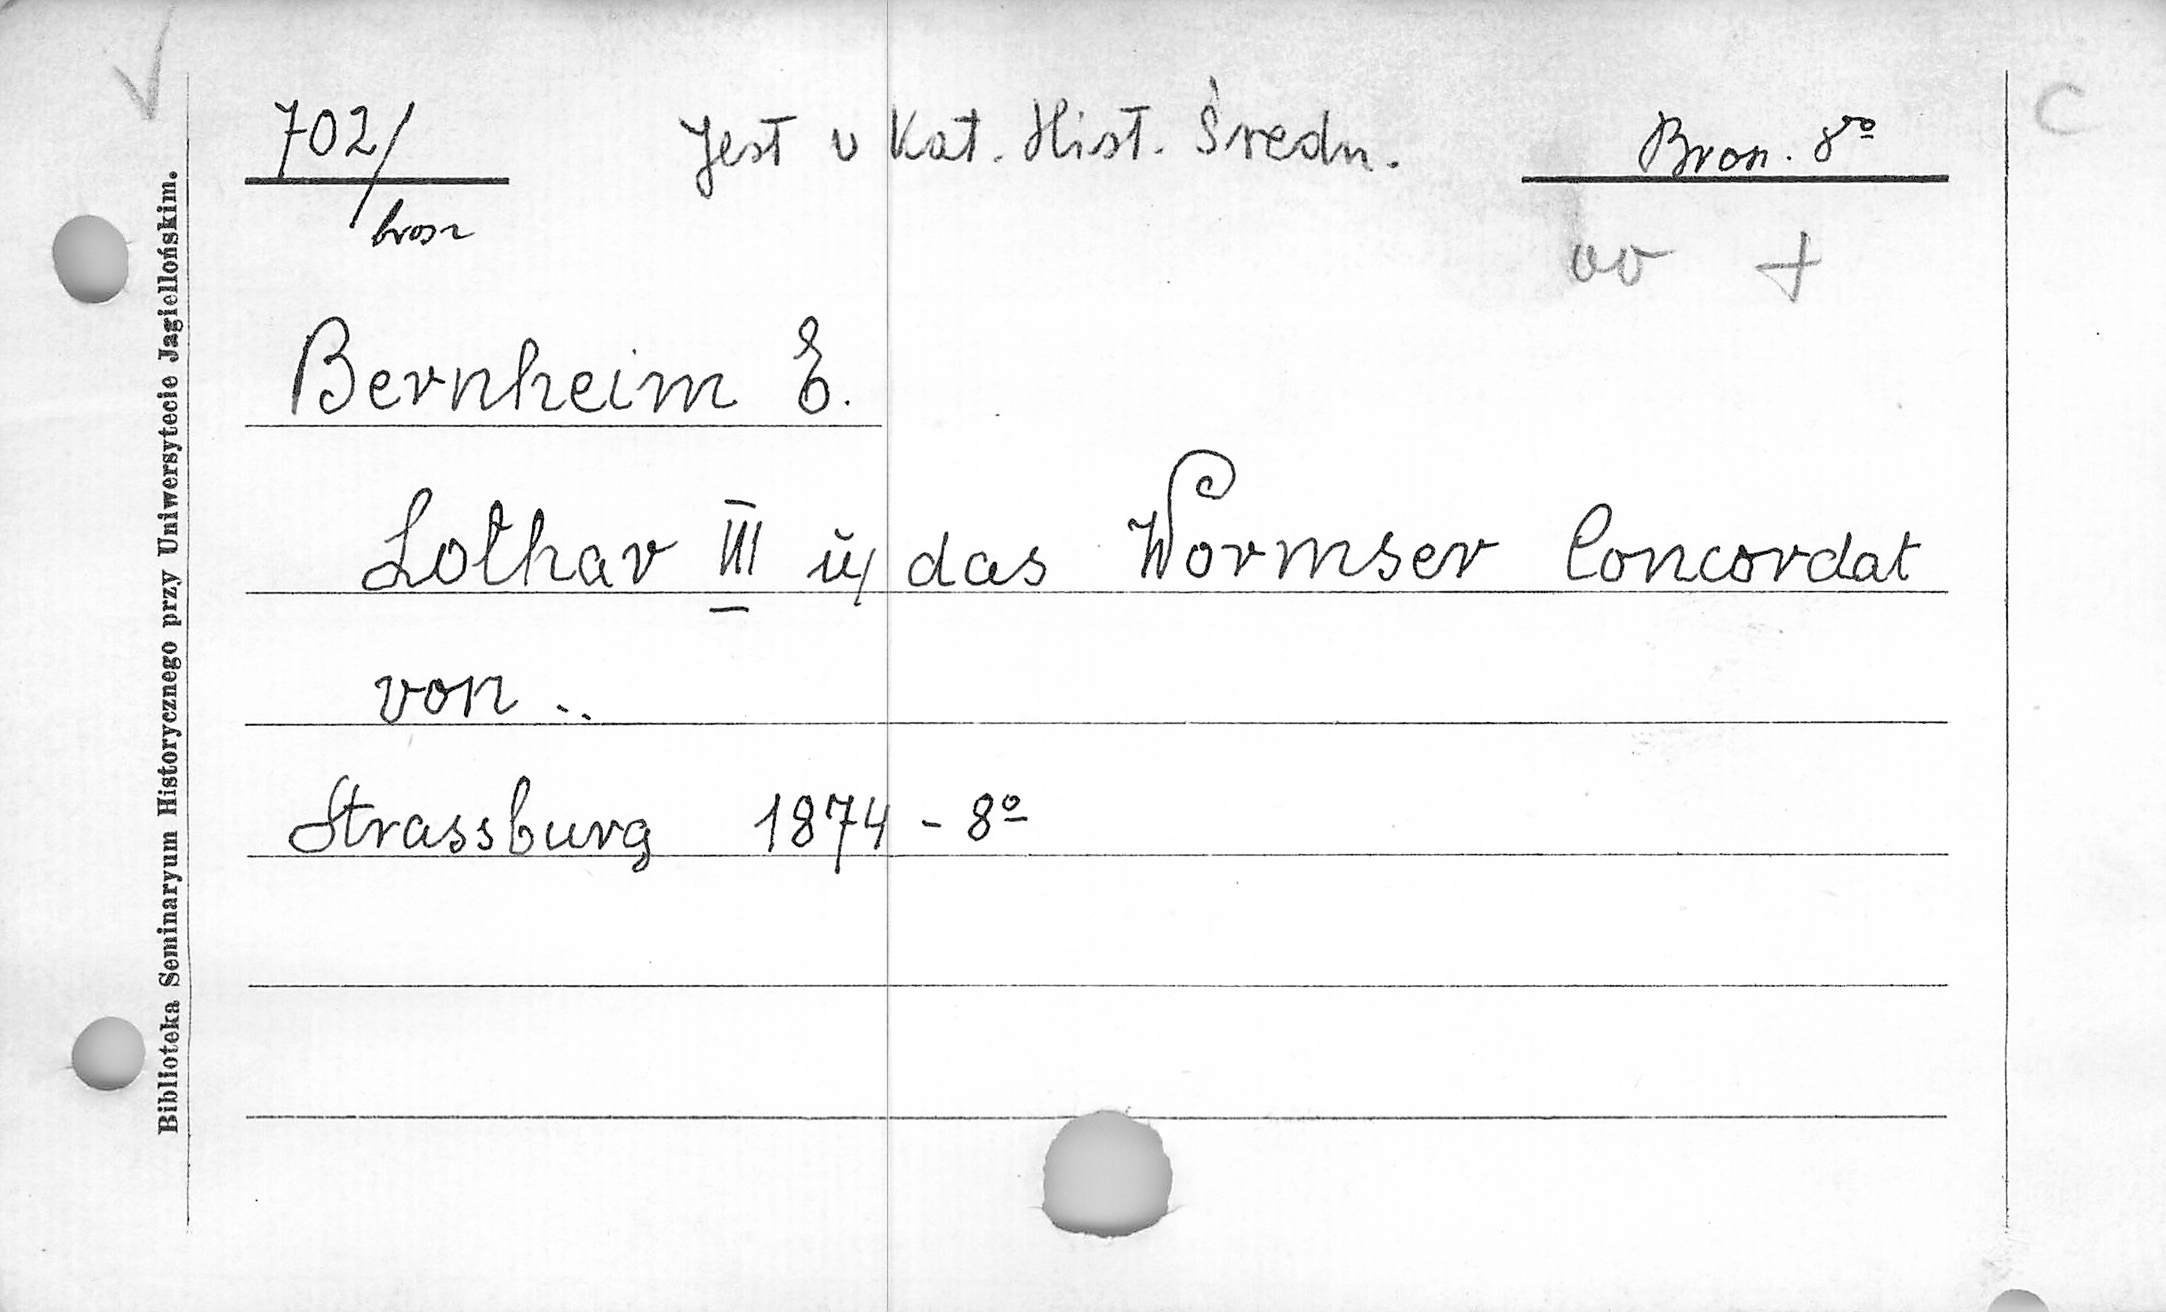 702/brosz
Jest v Kat. Hist. Średn.
Bron. 8vo
Bernheim E.
Lothar III u/ das Wormser Concordat
von ..
Strassburg 1874 - 8o
Biblioteka Seminaryum Historycznego przy Uniwersytecie Jagiellońskim.
C